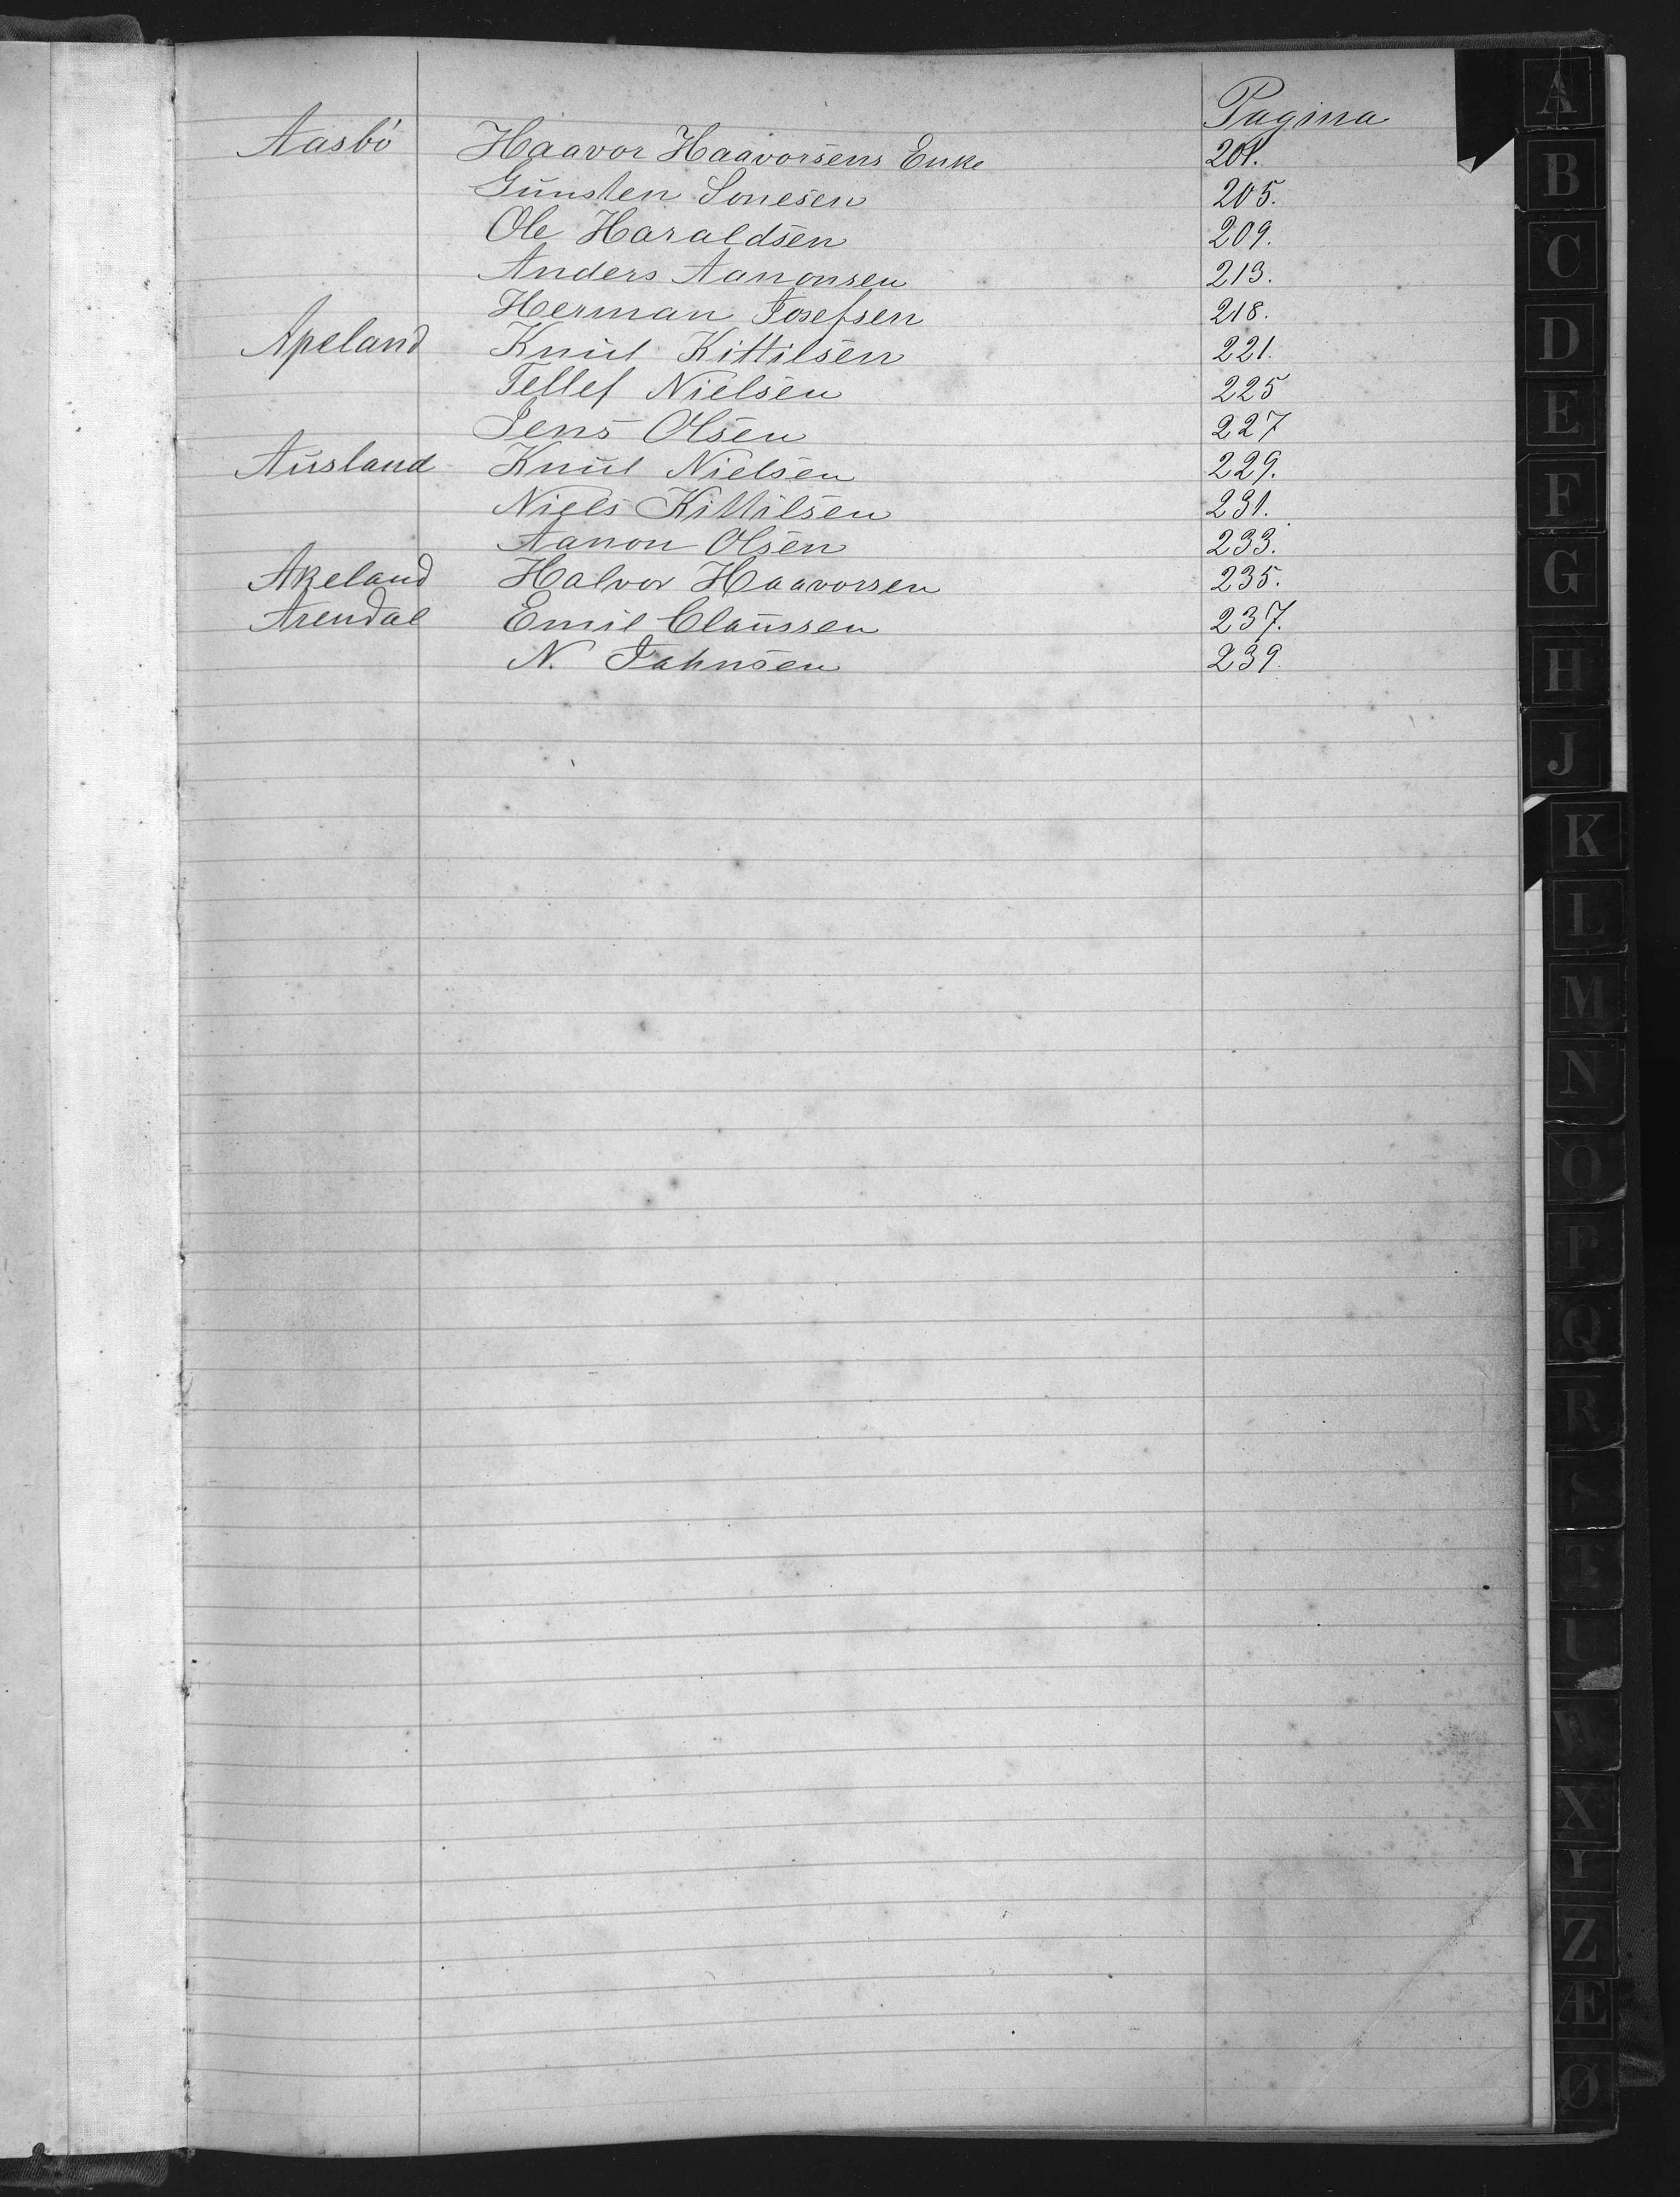 Pagina
Aasbö Haavor Haavorsens Enke 201.
Gunsten Sonesen 205.
Ole Haraldsen 209.
Anders Aanonsen 213.
Herman Josefsen 218.
Apeland Knut Kittilsen 221.
Tellef Nielsen 225
Jens Olsen 227
Ausland Knut Nielsen 229.
Niels Kittilsen 231.
Aanon Olsen 233.
Akeland Halvor Haavorsen 235.
Arendal Emil Claussen 237.
N. Jahnsen 239.
A
B
C
D
E
F
G
H
J
K
L
M
N
O
P
Q
R
T
U
W
X
Y
Z
Æ
Ø